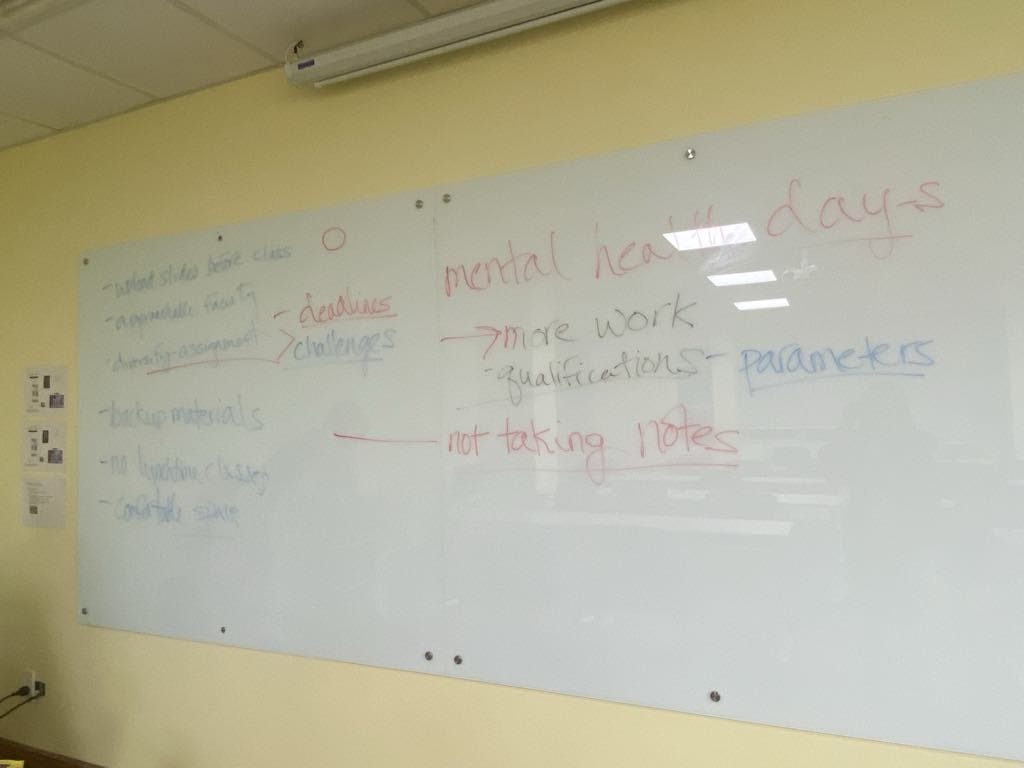 - upload slides before class
- approachable faculty
- diversify assignment
- deadlines
> challenges
- backup materials
- no lunchtime classes
- comfortable space
mental health days
→ more work
- qualifications - parameters
not taking notes